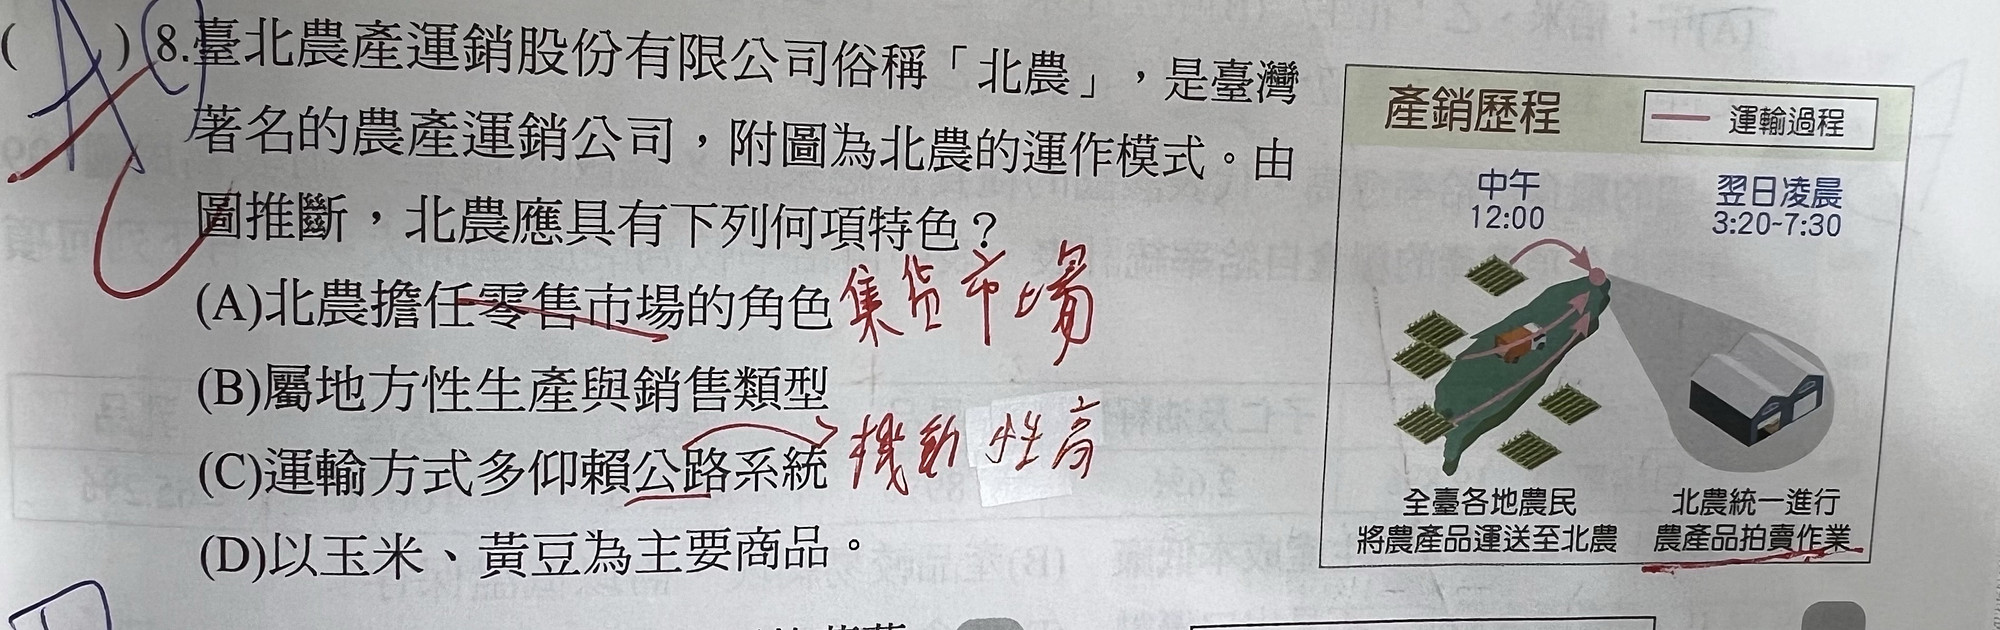 ( A ) 8.臺北農產運銷股份有限公司俗稱「北農」，是臺灣
著名的農產運銷公司，附圖為北農的運作模式。由
圖推斷，北農應具有下列何項特色？
(A)北農擔任零售市場的角色 集貨市場
(B)屬地方性生產與銷售類型
(C)運輸方式多仰賴公路系統 機動性高
(D)以玉米、黃豆為主要商品。
產銷歷程
運輸過程
中午
12:00
翌日凌晨
3:20~7:30
全臺各地農民
將農產品運送至北農
北農統一進行
農產品拍賣作業